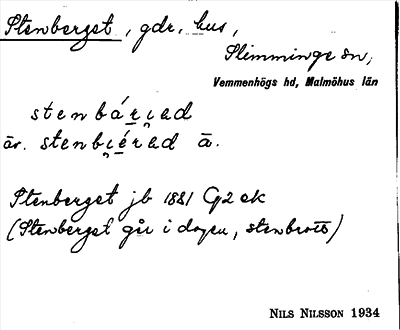 Stenberget, gdr, hus,
Slimminge sn,
Vemmenhögs hd, Malmöhus län
stenbár̯i̯ad
äv. stenbi̯érad ā.
Stenberget jb 1881 G2 ek
(Stenberget går i dagen, stenbrott)
NILS NILSSON 1934